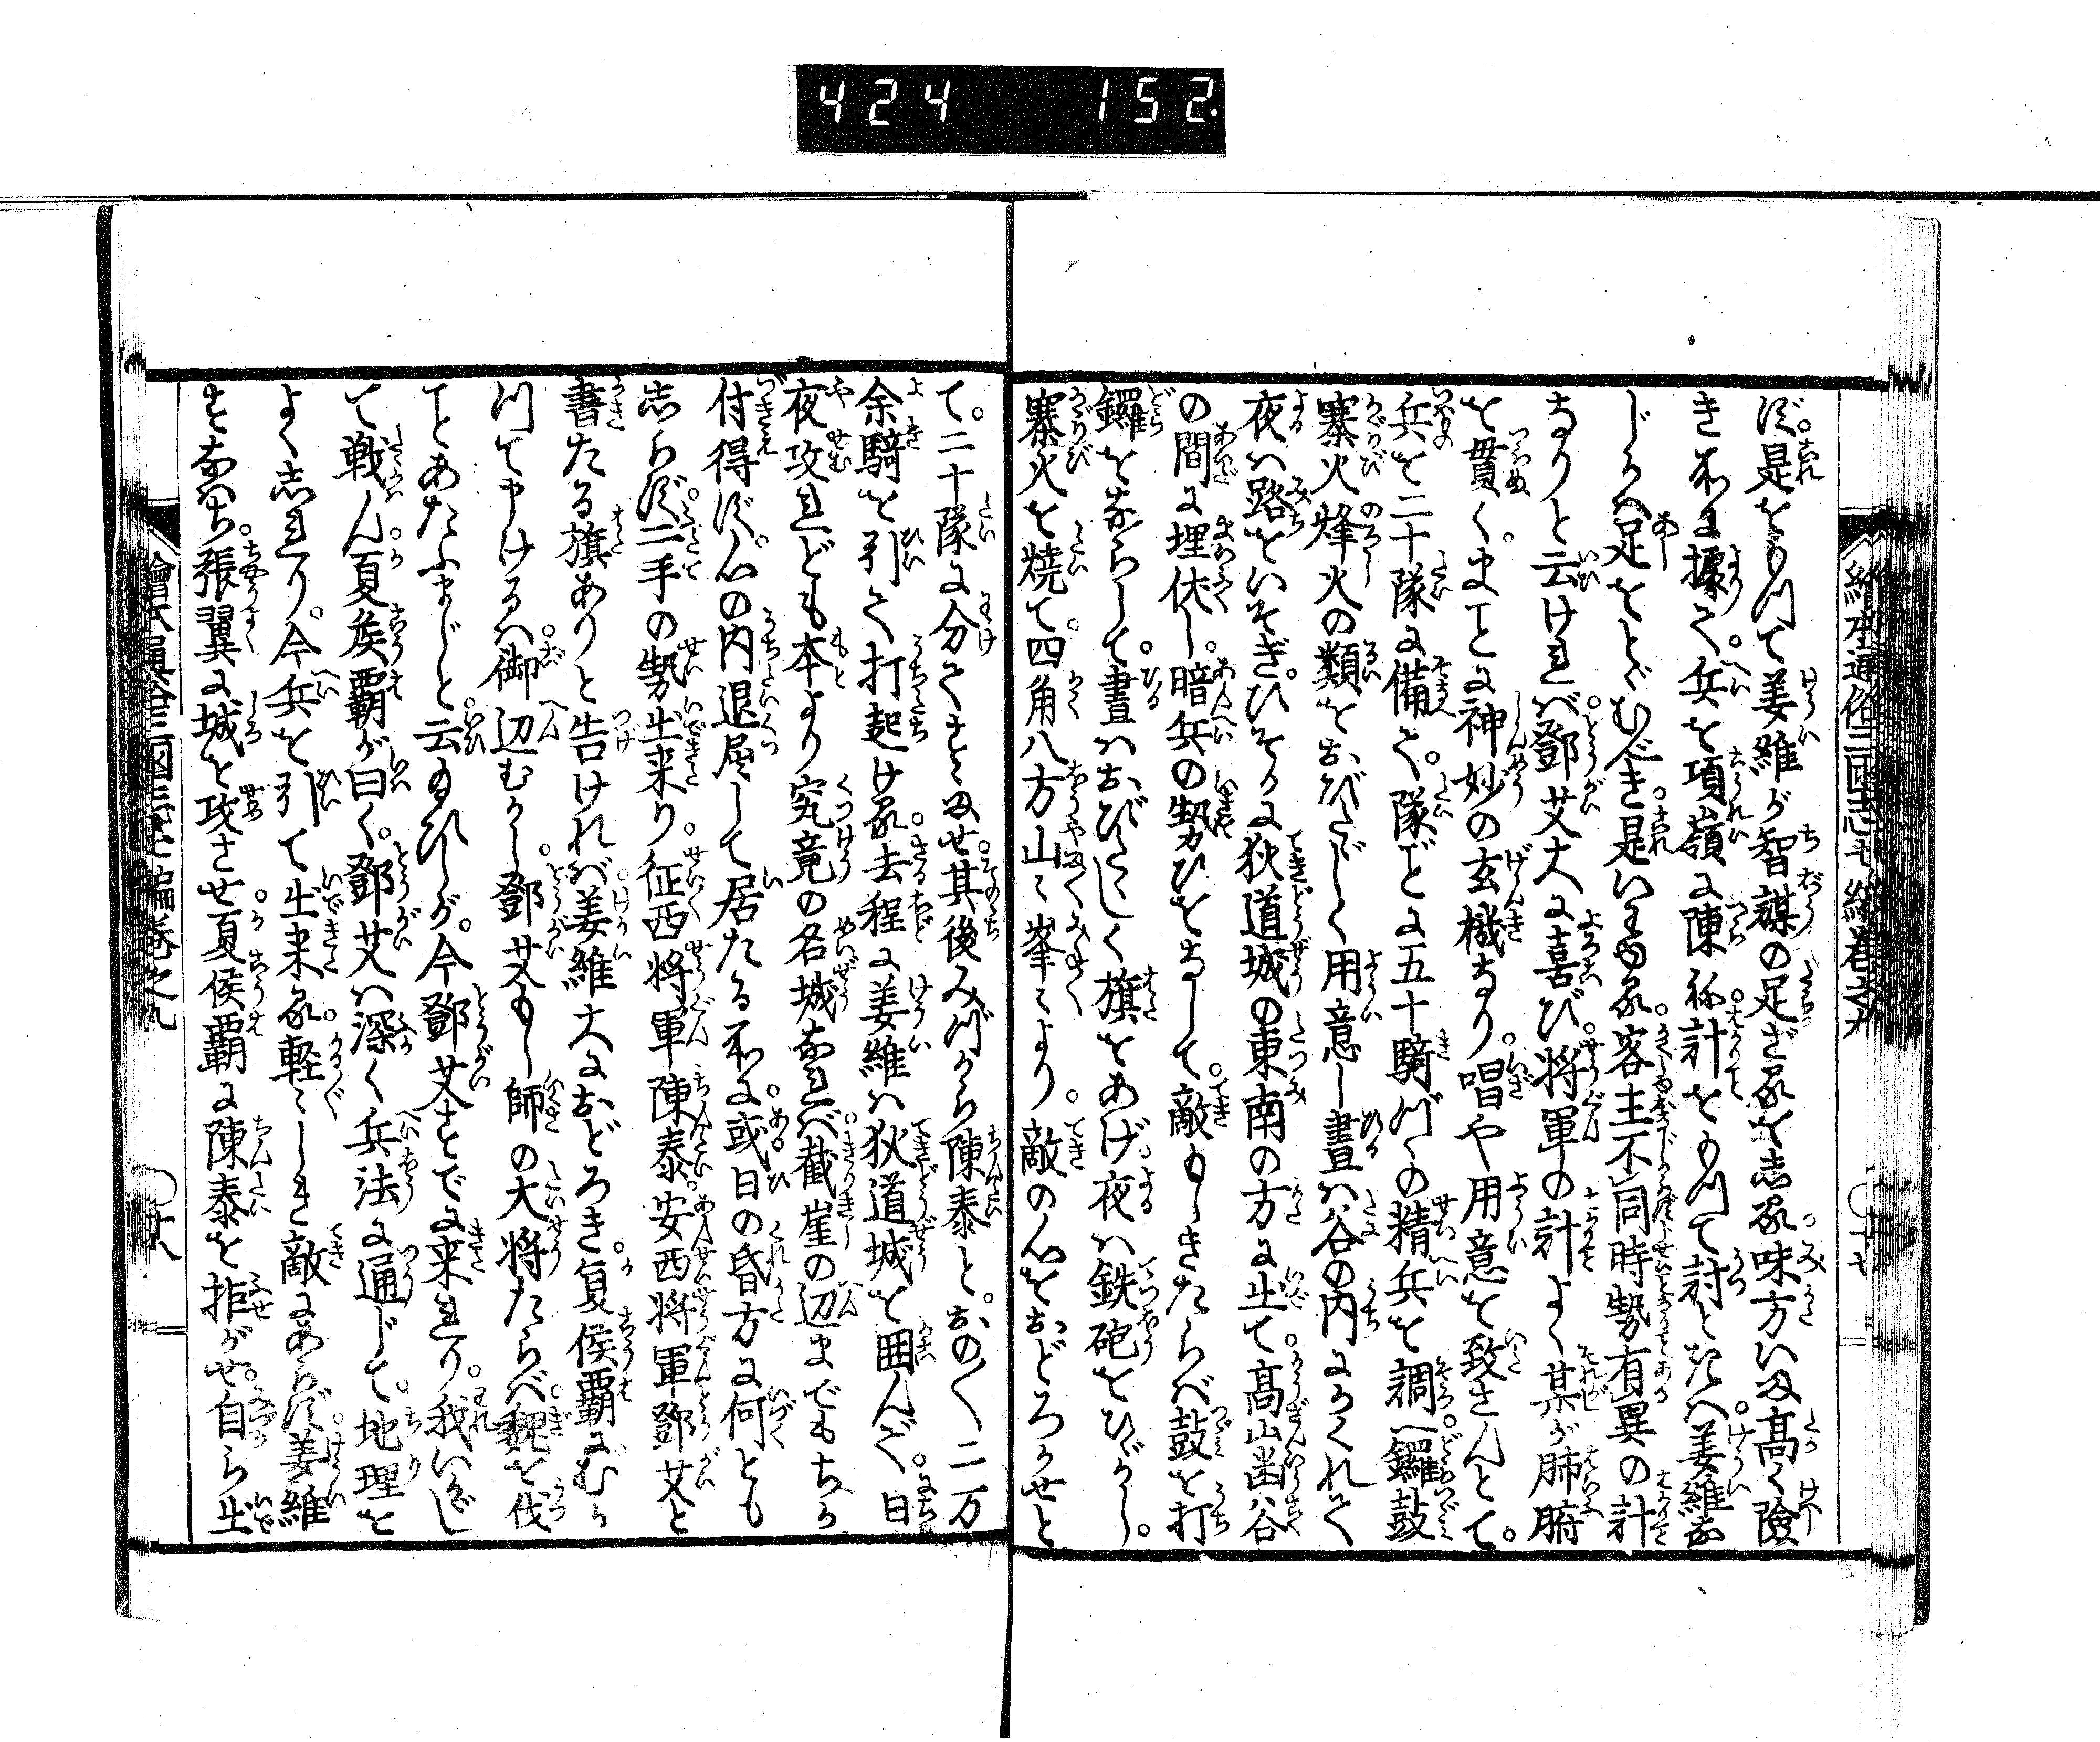 424 152.
繪本通俗三國志七編卷之九
十七
ず。是をもつて姜維が智謀の足ざるをしる。味方は又高く険
き所に據て。兵を項嶺に陳ね計をもつて討とたへ。姜維が
じかへ足をとゞむべき是いはゆる客主不同時勢有異の計
なりと云ければ。鄧艾大に喜び。将軍の計よく某が肺腑
を貫く。まことに神妙の玄機なり。唱や用意を致さんとて。
兵を二十隊に備て。隊ごとに五十騎づゝの精兵を調へ鑼鼓
寨火烽火の類をおびたゞしく用意し晝は谷の内にかくれて
夜は路をいそぎ。ひそかに狄道城の東南の方に出て。高山幽谷
の間に埋伏し。暗兵の勢ひをなして。敵もしきたらば鼓を打
鑼をならして。晝はおびたゝしく旗をあげ。夜は鉄砲をひゞかし。
寨火を焼て。四角八方山々峯々より。敵の心をおどろかせと
て。二十隊に分てさしつかはせ。其後みづから陳泰と。おの〳〵二万
余騎を引て打起ける。去程に姜維は狄道城を囲んで。日
夜攻れども本より究竟の名城なれば。截崖の辺までもちか
付得ず。心の内退屈して居たる所に。或日の昏方に何とも
しらず。二手の勢出来り。征西将軍陳泰。安西将軍鄧艾と
書たる旗ありと告ければ。姜維大におどろき。夏侯覇にむか
つて申けるは。御辺むかし。鄧艾もし師の大将たらば。魏を伐
ことあたふまじと。云給ひしが。今鄧艾すでに来れり。我いかゞし
て戦ん。夏侯覇が曰く。鄧艾は深く兵法に通じて。地理を
よくしれり。今兵を引て出来る。軽々しき敵にあらず。姜維
すなはち。張翼に城を攻させ。夏侯覇に陳泰を拒がせ。自ら出
繪本通俗三國志七編卷之九
十八